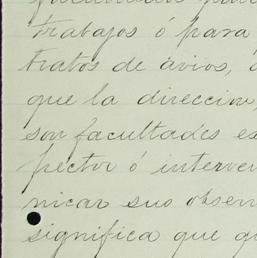 facultades par
trabajos ó para
tratos de avios, 
que la direccion,
son facultades es
pector ó interve
nicar sus obser
significa que qu